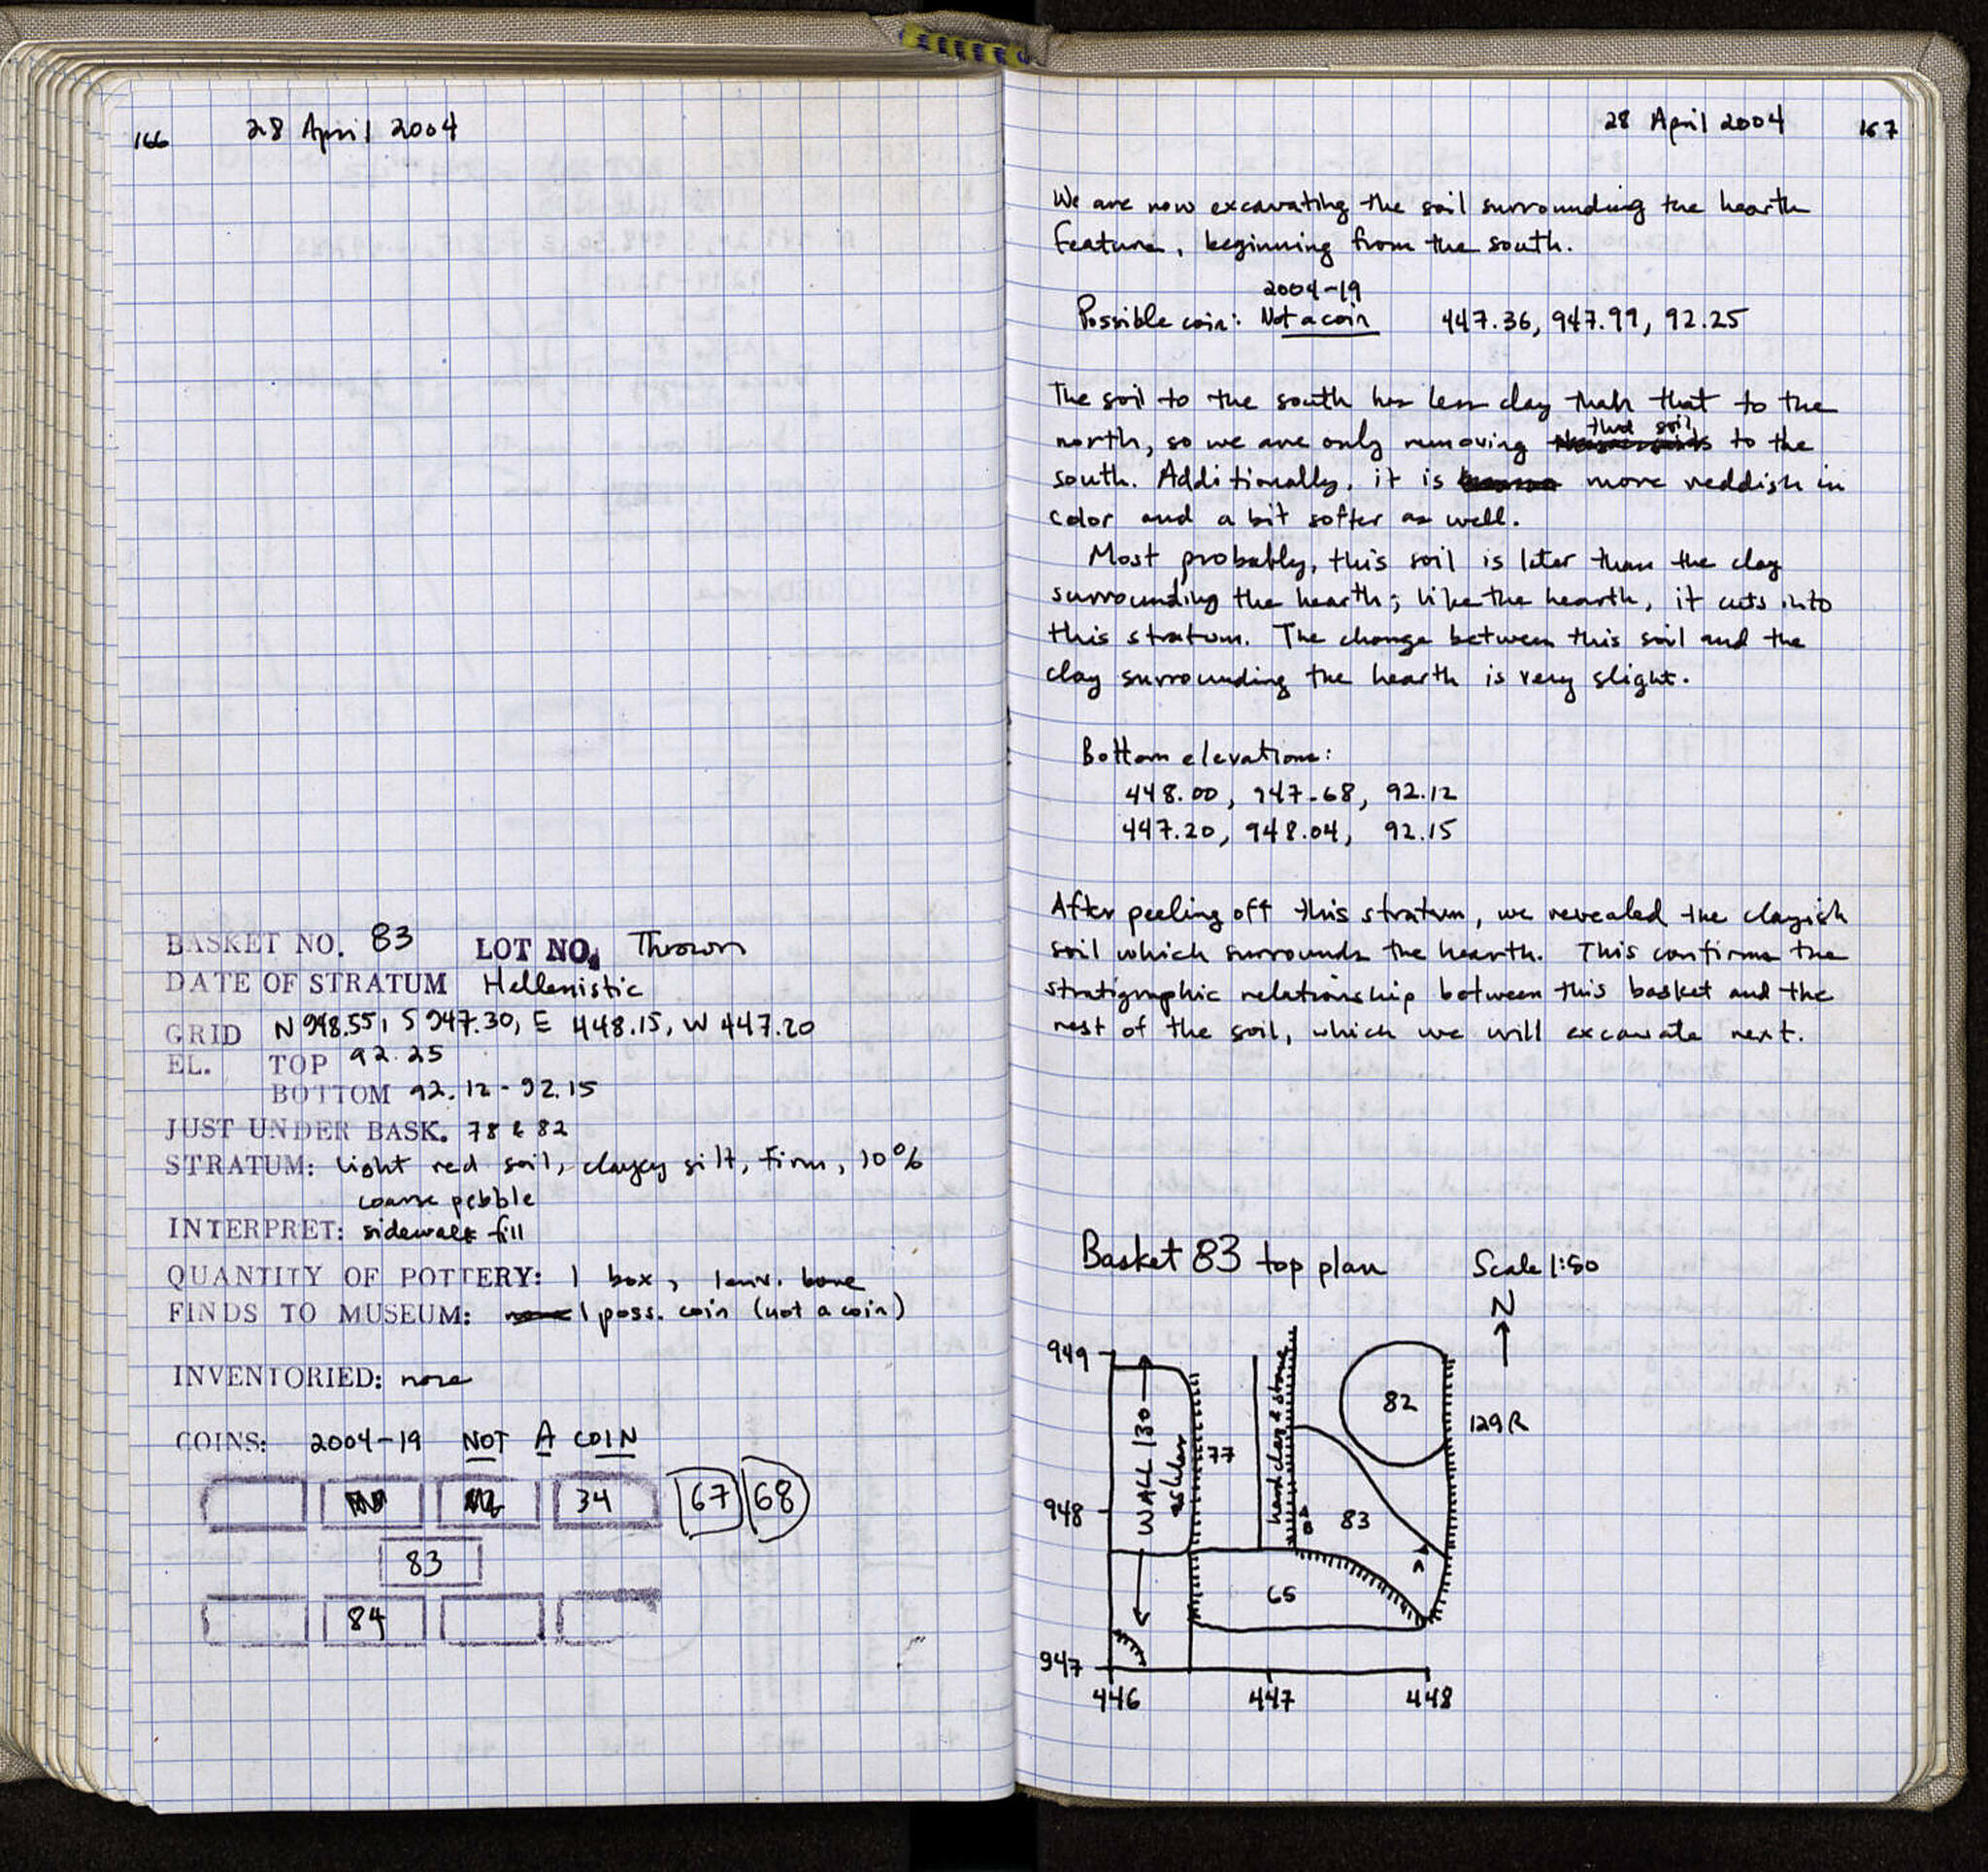 166 28 April 2004
BASKET NO. 83 LOT NO. Thrown
DATE OF STRATUM Hellenistic
GRID N 948.55, S 947.30, E 448.15, W 447.20
EL. TOP 92.25
BOTTOM 92.12-92.15
JUST UNDER BASK. 78 & 82
STRATUM: light red soil, clayey silt, firm, 10%
coarse pebble
INTERPRET: sidewalk fill
QUANTITY OF POTTERY: 1 box, 1 env. bone
FINDS TO MUSEUM: 1 poss. coin (not a coin)
INVENTORIED: none
COINS: 2004-19 NOT A COIN
34 67 68
83
84
28 April 2004 167
We are now excavating the soil surrounding the hearth
feature, beginning from the south.
2004-19
Possible coin: Not a coin 447.36, 947.99, 92.25
The soil to the south has less clay than that to the
north, so we are only removing that soil to the
south. Additionally, it is more reddish in
color and a bit softer as well.
Most probably, this soil is later than the clay
surrounding the hearth; like the hearth, it cuts into
this stratum. The change between this soil and the
clay surrounding the hearth is very slight.
Bottom elevations:
448.00, 947.68, 92.12
447.20, 948.04, 92.15
After peeling off this stratum, we revealed the clayish
soil which surrounds the hearth. This confirms the
stratigraphic relationship between this basket and the
rest of the soil, which we will excavate next.
Basket 83 top plan Scale 1:50
N
949
WALL 130
ashlar
77
hard clay & stones
82
129R
948
83
65
947
446 447 448